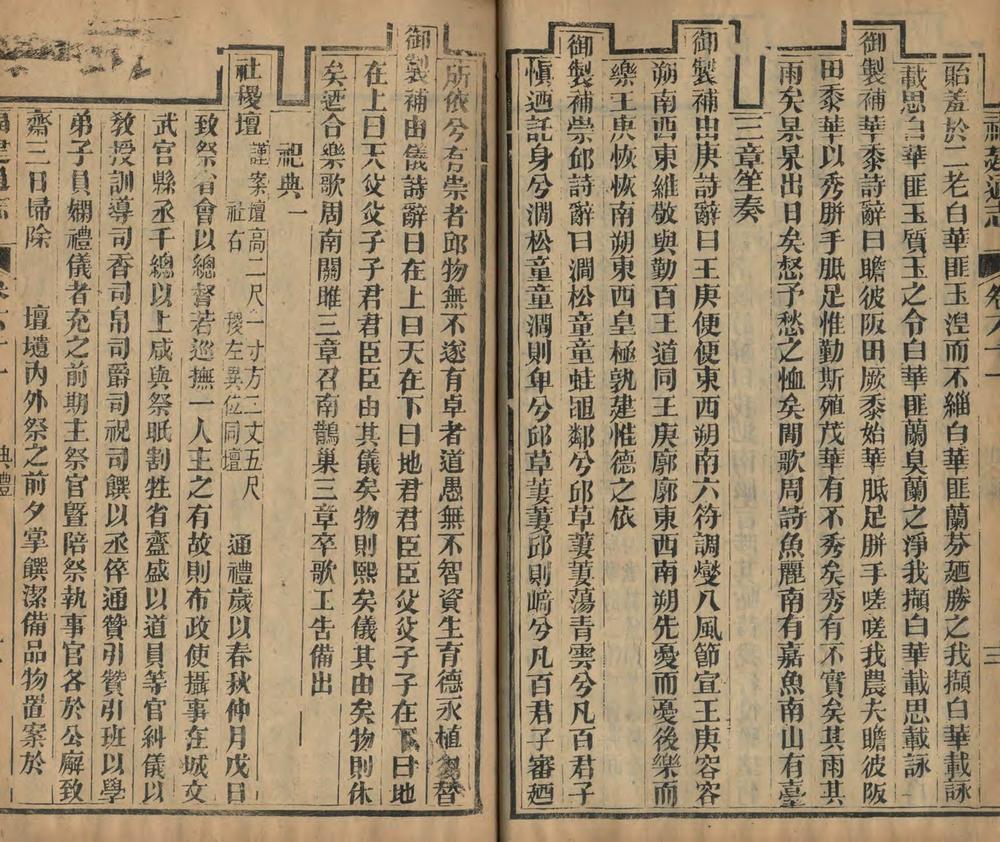 貽羞於二老白華匪玉湼而不緇白華匪蘭芬廼勝之我擷白華載詠
載思白華匪玉質玉之令白華匪蘭臭蘭之淨我擷白華載思載詠
御製補華黍詩辭曰瞻彼阪田厥黍始華胝足胼手嗟嗟我農夫瞻彼阪
田黍華以秀胼手胝足惟勤斯殖茂華有不秀矣秀有不實矣其雨其
雨矣杲杲出日矣惄予愁之恤矣間歌周詩魚麗南有嘉魚南山有臺
三章笙奏
御製補由庚詩辭曰王庚便便東西朔南六符調燮八風節宣王庚容容
朔南西東維敬與勤百王道同王庚廓廓東西南朔先憂而憂後樂而
樂王庚恢恢南朔東西皇極孰建惟德之依
御製補崇邱詩辭曰澗松童童蛙黽鄰兮邱草萋萋蕩青雲兮凡百君子
慎廼託身兮澗松童童澗則卑兮邱草萋萋邱則崎兮凡百君子審廼
所依兮有崇者邱物無不遂有卓者道愚無不智資生育德永植
御製補由儀詩辭曰在上曰天在下曰地君君臣臣父父子子在下曰地
在上曰天父父子子君君臣臣由其儀矣物則熙矣儀其由矣物則休
矣廼合樂歌周南關雎三章召南鵲巢三章卒歌工告備出
祀典一
社稷壇 謹案壇高二尺一寸方三丈五尺 社右稷左異位同壇 通禮歲以春秋仲月戊日
致祭省會以總督若巡撫一人主之有故則布政使攝事在城文
武官縣丞千總以上咸與祭眂割牲省齍盛以道員等官糾儀以
敎授訓導司香司帛司爵司祝司饌以丞倅通贊引贊引班以學
弟子員嫻禮儀者充之前期主祭官暨陪祭執事官各於公廨致
齋三日掃除 壇壝內外祭之前夕掌饌潔備品物置案於
典禮
三